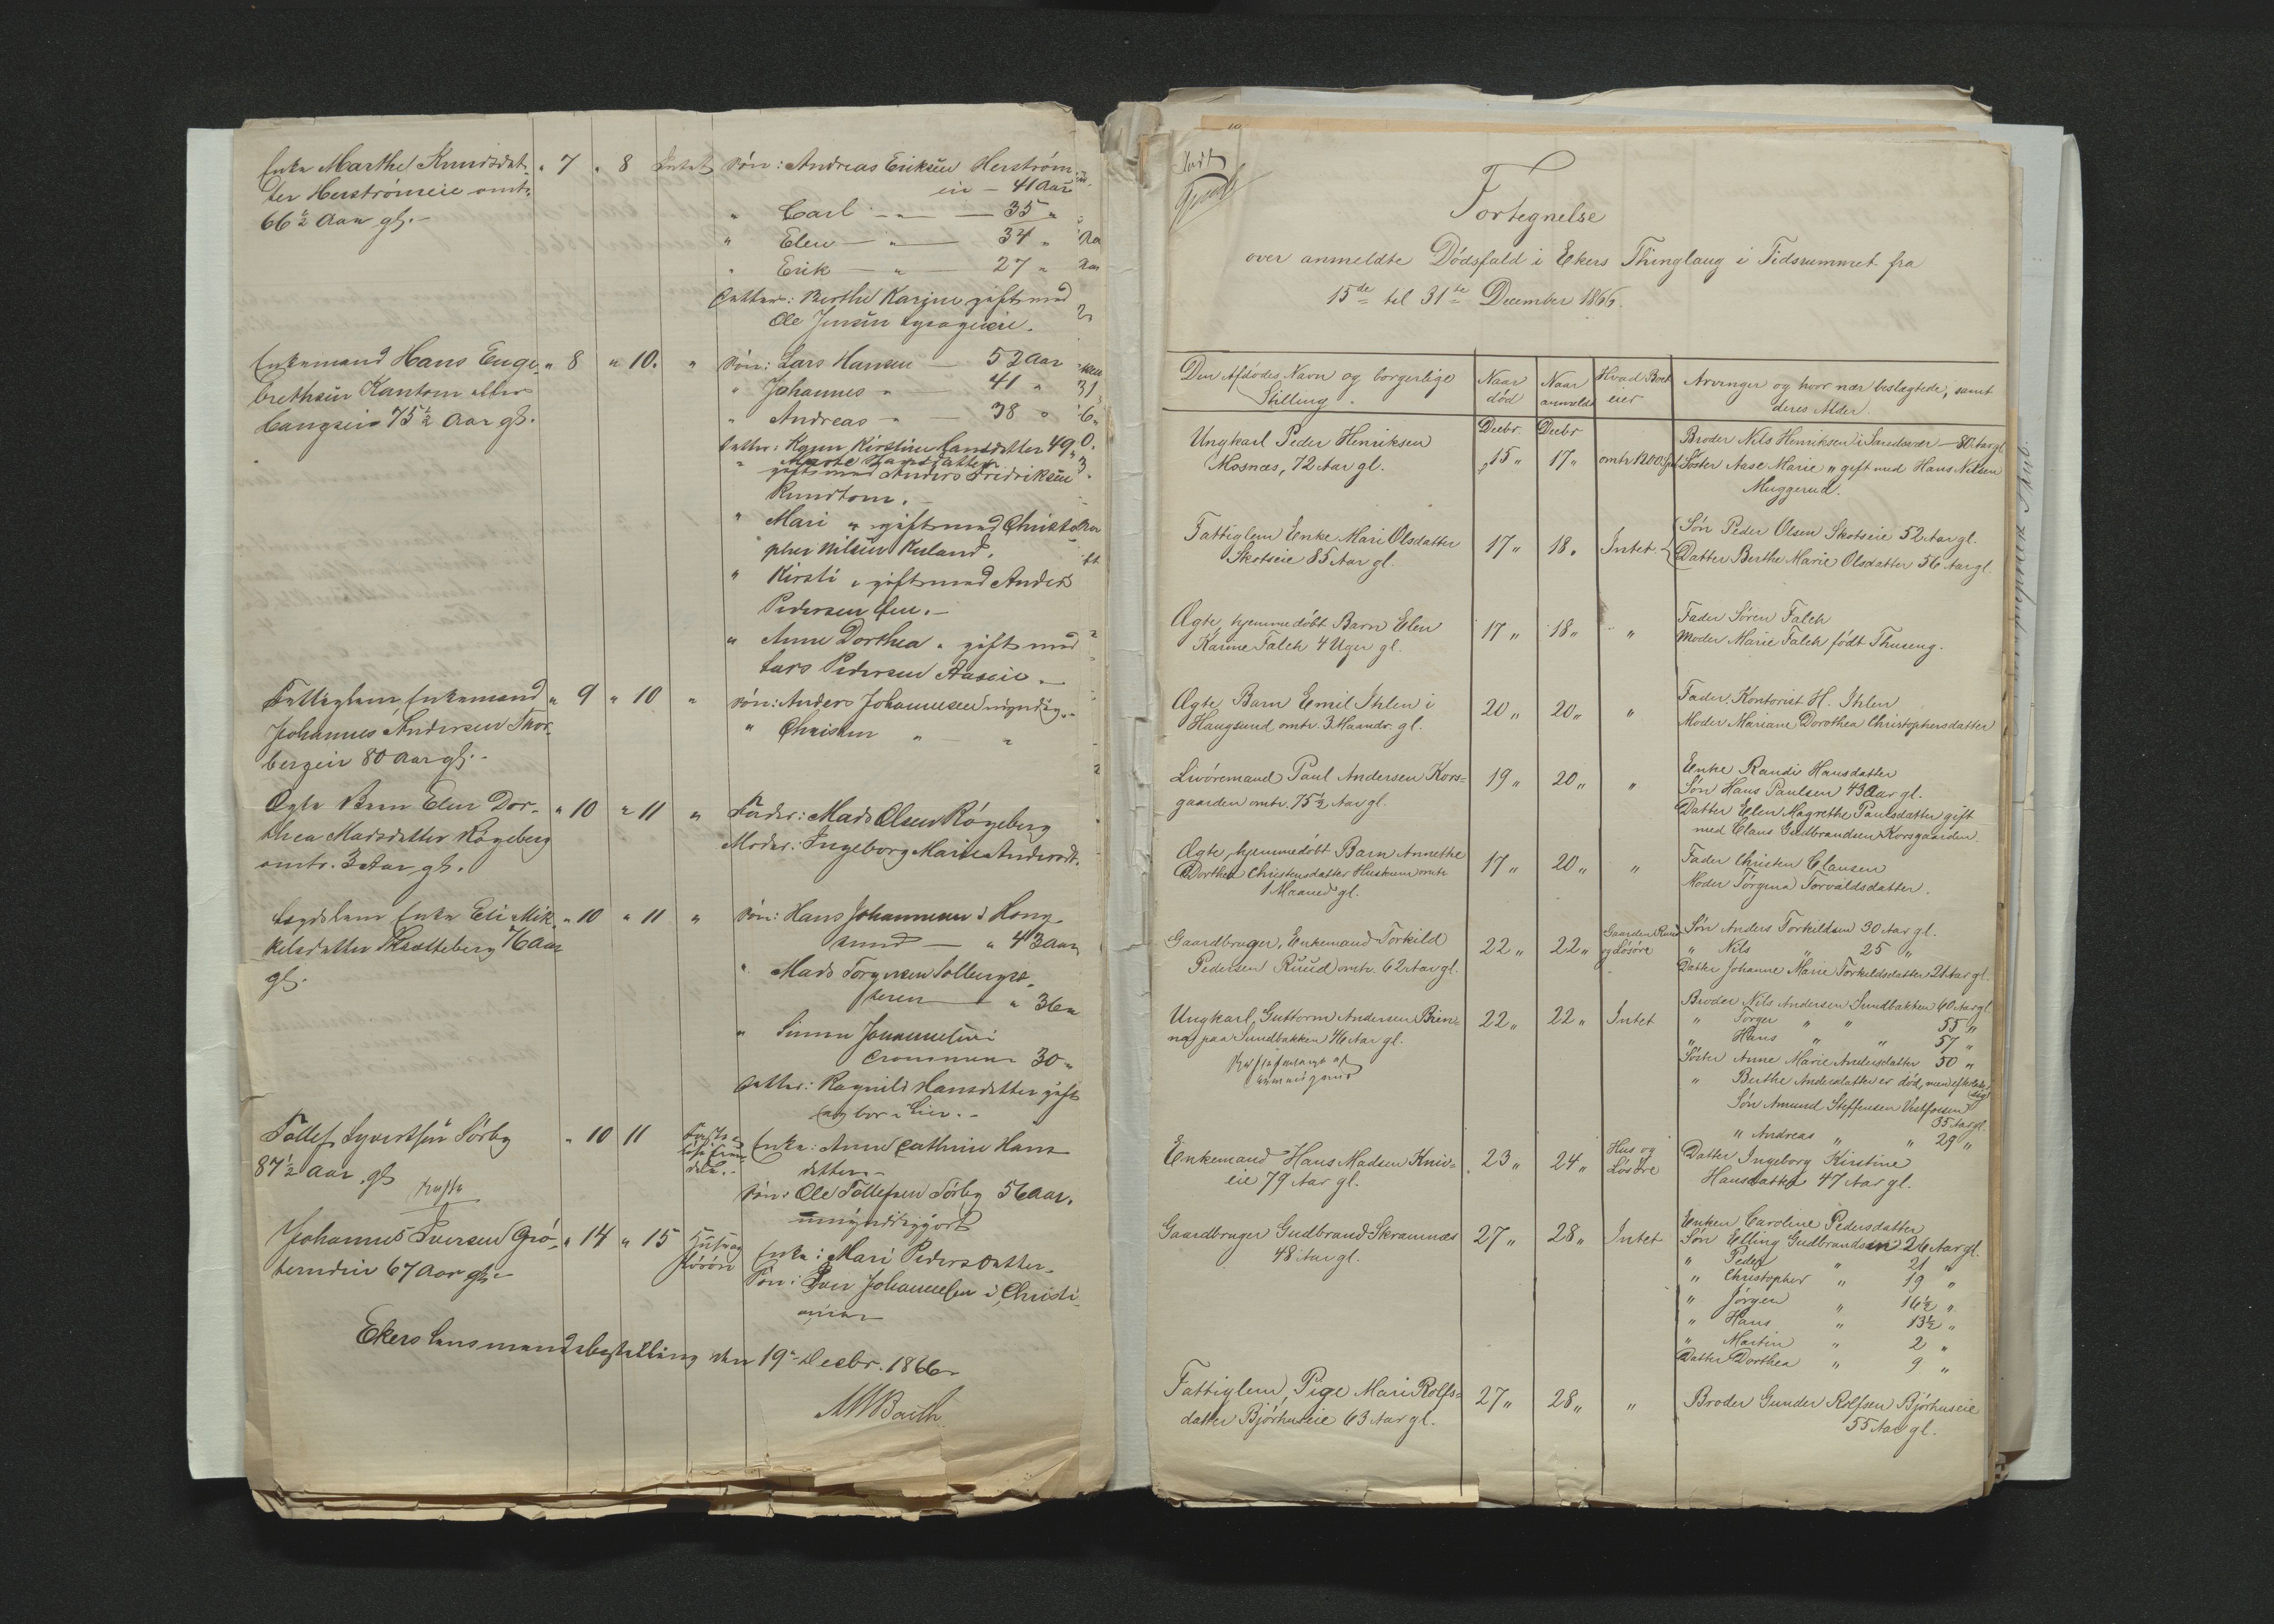 Enke Marthe Knudsdat- " 7 " 8 Intet Søn: Andreas Eriksen Herstrøm-
ter Herstrømeie omtr. eie — 41 Aar
66½ Aar gl. — " Carl — " — 35 "
" Elen — " — 34 "
" Erik — " — 27 "
Datter: Berthe Karine gift med
Ole Jensen
Enkemand Hans Enge- " 8 " 10. " Søn: Lars Hansen — 52 Aar
brethsen Kantom eller " Johannes " 41 "
75½ Aar gl. " Andreas " 38 "
Datter: Karen Kirstine Hansdatter 49 "
" Marte Hansdatter
gift med Anders Fredriksen
Rundtom.
" Mari " gift med Christo-
pher Nilsen Ruland.
" Kirsti " gift med Anders
Pedersen
" Anne Dorthea " gift med
Lars Pedersen Aaseie. —
Fattiglem, Enkemand " 9 " 10 " Søn: Anders Johannesen myndig. -
Johannes Andersen Thor- " Christen " "
bergeie 80 Aar gl. -
Ægte Barn Elen Dor- " 10 " 11 " Fader: Mads Olsen Røgeberg
thea Madsdatter Røgeberg Moder: Ingeborg Marie Andersdt.
omtr. 3 Aar gl.
Lægdslem Enke Eli Mik- " 10 " 11 " Søn: Hans Johannesen i Houg-
kelsdatter Skotteberg 76 Aar sund — " 43 Aar
gl. " Mads Torgersen Solbergs-
" 36 "
" Simen Johannesen i
Drammen 30 "
Datter: Ragnild Hansdatter gift
og bor i Lier. -
Tollef Syvertsen Sørby " 10 11 Enke: Anne Cathrine Hans-
87½ Aar gl datter -
Søn: Ole Tollefsen Sørby 56 Aar.
umyndiggjort
Johannes Iversen Grø- " 14 " 15 Huus og Enke: Mari Pedersdatter.
67 Aar gl. - Løsøre Søn: Iver Johannesen i Christi-
ania
Ekers Lensmandsbestilling den 19de Decbr. 1866
Fortegnelse
over anmeldte Dødsfald i Ekers Thinglaug i Tidsrummet fra
15de til 31te December 1866.
Den Afdødes Navn og borgerlige Naar Naar Hvad Boet Arvinger og hvor nær beslægtede, samt
Stilling. død anmeldt eier deres Alder.
Decbr. Decbr
Ungkarl Peder Henriksen Broder Nils Henriksen i Sandsvær — 80 Aar gl
Mosnæs, 72 Aar gl. 15 " 17 " omtr 1200 Spd Søster Aase Marie " gift med Hans Nilsen
Muggerud.
Fattiglem Enke Mari Olsdatter 17 " 18 " Intet. Søn Peder Olsen Skotseie 52 Aar gl.
Skotseie 85 Aar gl. Datter Berthe Marie Olsdatter 56 Aar gl.
Ægte, hjemmedøbt Barn Elen 17 " 18 " " Fader Søren Falch
Karine Falch 4 Uger gl. Moder Marie Falch født Thuseng.
Ægte Barn Emil Ihlen i 20 " 20 " " Fader Kontorist H. Ihlen
Haugsund omtr. 3 Maandr. gl. Moder Mariane Dorothea Christophersdatter
Livøremand Paul Andersen Kors- 19 " 20 " " Enke Randi Hansdatter
gaarden omtr. 75½ Aar gl. Søn Hans Paulsen 43 Aar gl.
Datter Elen Magrethe Paulsdatter gift
med Claus Gudbrandsen Korsgaarden.
Ægte, hjemmedøbt Barn Annethe 17 " 20 " " Fader Christen Clausen
Dorthea Christensdatter Huskum omtr Moder Jørgina Torvaldsdatter.
1 Maaned gl.
Gaardbruger, Enkemand Torkild 22 " 22 " Gaarden Ruud og Løsøre Søn Anders Torkildsen 30 Aar gl.
Pedersen Ruud omtr. 62 Aar gl. " Nils " 25 "
Datter Johanne Marie Torkildsdatter 21 Aar gl.
Ungkarl, Guttorm Andersen 22 " 22 " Intet Broder Nils Andersen Sundbakken 60 Aar gl
paa Sundbakken 46 Aar gl. " Torger " " 55 "
" Hans " " 57 "
Søster Anne Marie Andersdatter 50 "
" Berthe Andersdatter er død, men efterladt sig
Søn Amund Steffensen Vestfossen
35 Aar gl.
" Andreas " " 29 "
Enkemand Hans Madsen Knive- 23 " 24 " Hus og Løsøre Datter Ingeborg Kirstine
eie 79 Aar gl. Hansdatter 47 Aar gl.
Gaardbruger Gudbrand Skramnæs 27 " 28 " Intet Enken Caroline Pedersdatter
48 Aar gl. Søn Elling Gudbrandsen 26 Aar gl.
" Peder " 21 "
" Christopher " 19 "
" Jørgen " 16½ "
" Hans " 13½ "
" Martin " 2 "
Datter Dorthea " 9 "
Fattiglem, Pige Mari Rolfs- 27 " 28 " " Broder Gunder Rolfsen Bjørhuseie
datter Bjørhuseie 63 Aar gl. 55 Aar gl.